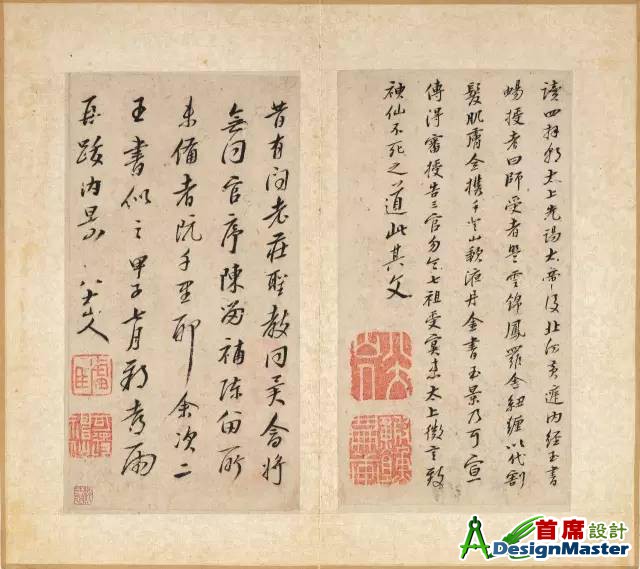 讀四拜朝太上先謁太帝後北向黃庭內經玉書
暢授者曰師受者盟雲錦鳳羅金紐纏以代割
髮肌膚全攜手登山歃液丹金書玉景乃可宣
傳得審授告三官勿令七祖受冥患太上微言致
神仙不死之道此其文
昔有問老莊聖教同異會將
無同官序陳留補陳留所
未備者阮千里耶余次二
王書似之甲子七月雨
後跋內景八大山人
首席設計
DesignMaster